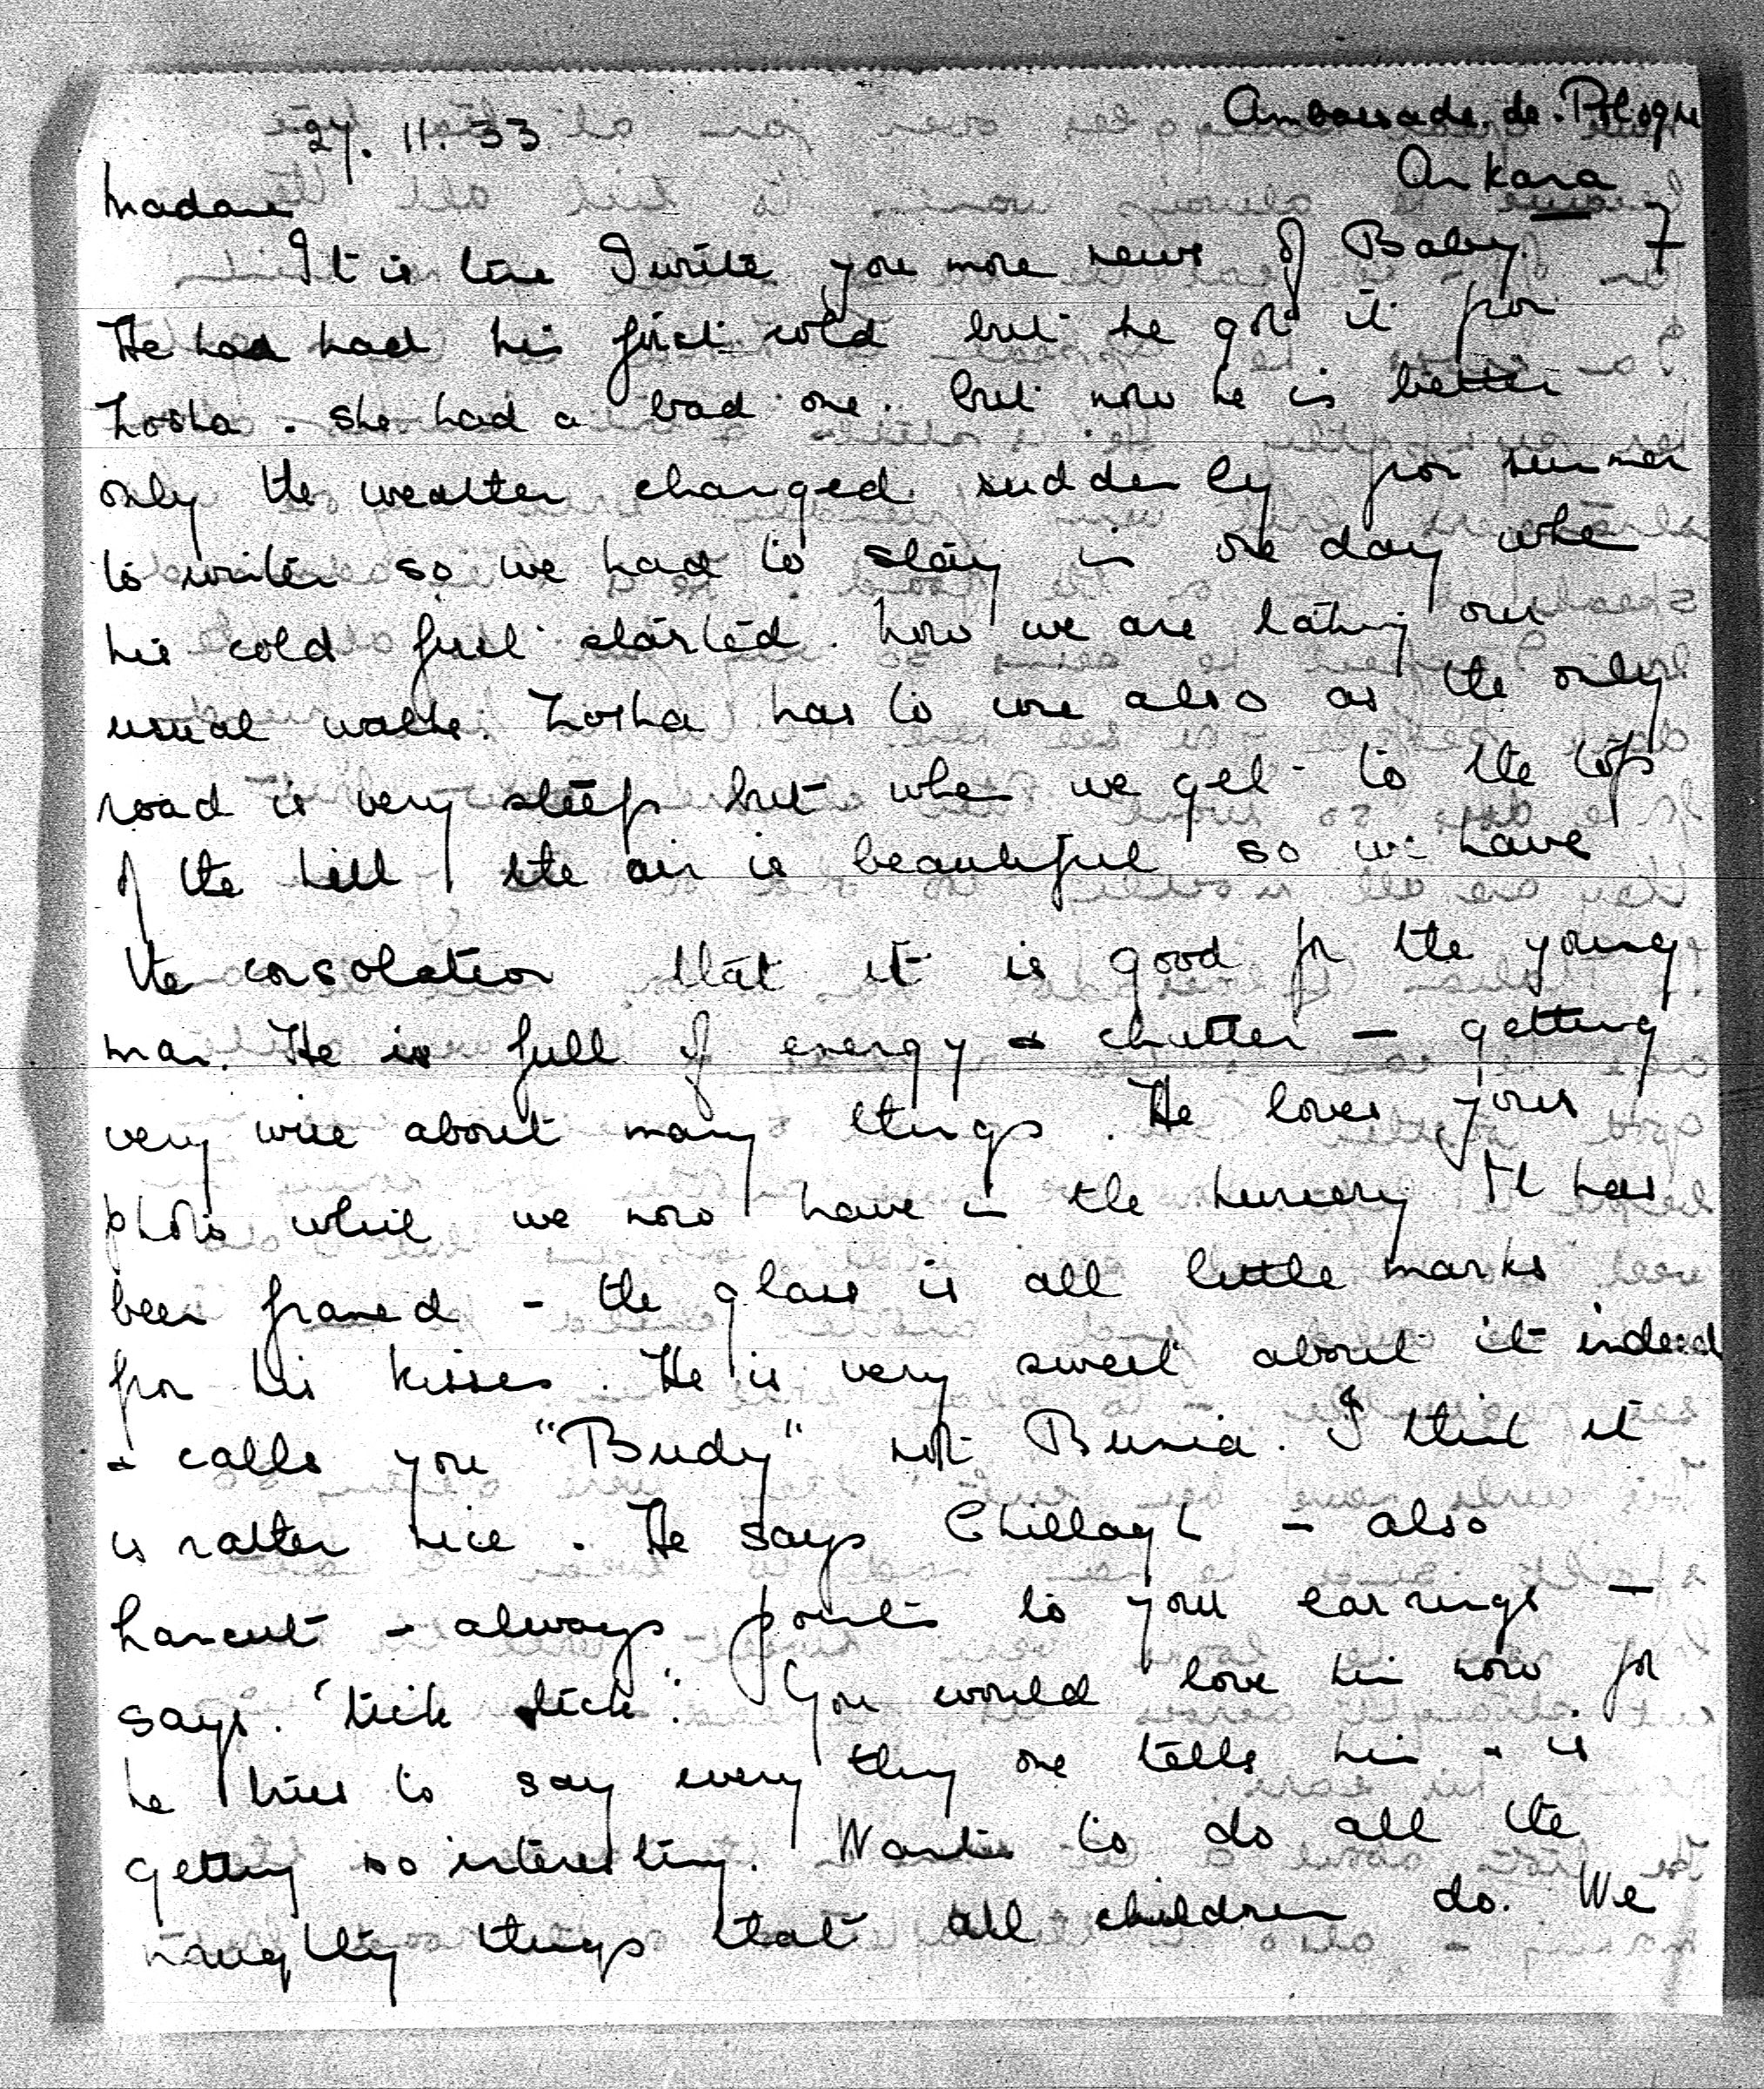 27. 11. 33
Ambassade de Pologne
Ankara
Madame
It is time I write you more news of Baby.
He has had his first cold but he got it from
Zosha. she had a bad one. but now he is better
only the weather changed suddenly from summer
to winter so we had to stay in one day when
his cold first started. Now we are taking our
usual walks. Zosha has to come also as the only
road is very steep but when we get to the top
of the hill the air is beautiful so we have
the consolation that it is good for the young
man. He is full of energy & chatter - getting
very wise about many things. He loves your
photo which we now have in the nursery It has
been framed - the glass is all little marks
from his kisses. He is very sweet about it indeed
& calls you "Budy" not Bunia. I think it
is rather nice. He says - also
haircut - always points to your earrings -
says. "tick tick". You would love him now for
he tries to say every thing one tells him & is
getting so interesting. Wants to do all the
naughty things that all children do. We